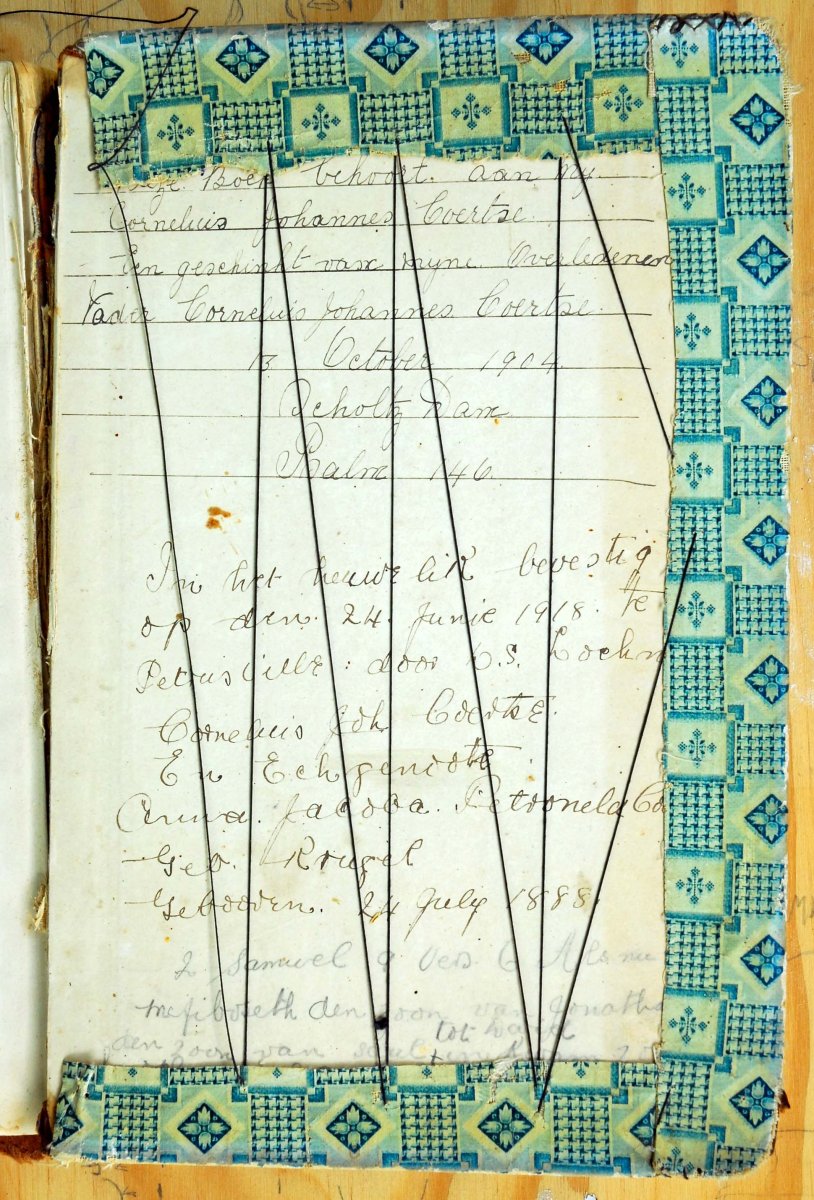 Boek behoort aan my
Cornelius Johannes Coertse
Een geschinkt van myne Overledenen
Vader Cornelius Johannes Coertse
13 October 1904
Scholtz Dam
Psalm 146
In het heuwelik bevestig
op den 24 Junie 1918 te
Petrusville : door D.S. Lochn
Cornelius Joh Coertse
En Echgenoote
Anna Jacoba Petronela Co
Geb. Krugel
Gebooren. 24 July 1888
2 Samuel 9 Vers 6 Als nu
mefiboseth den zoon van Jonatha
tot David
den zoon van Saul